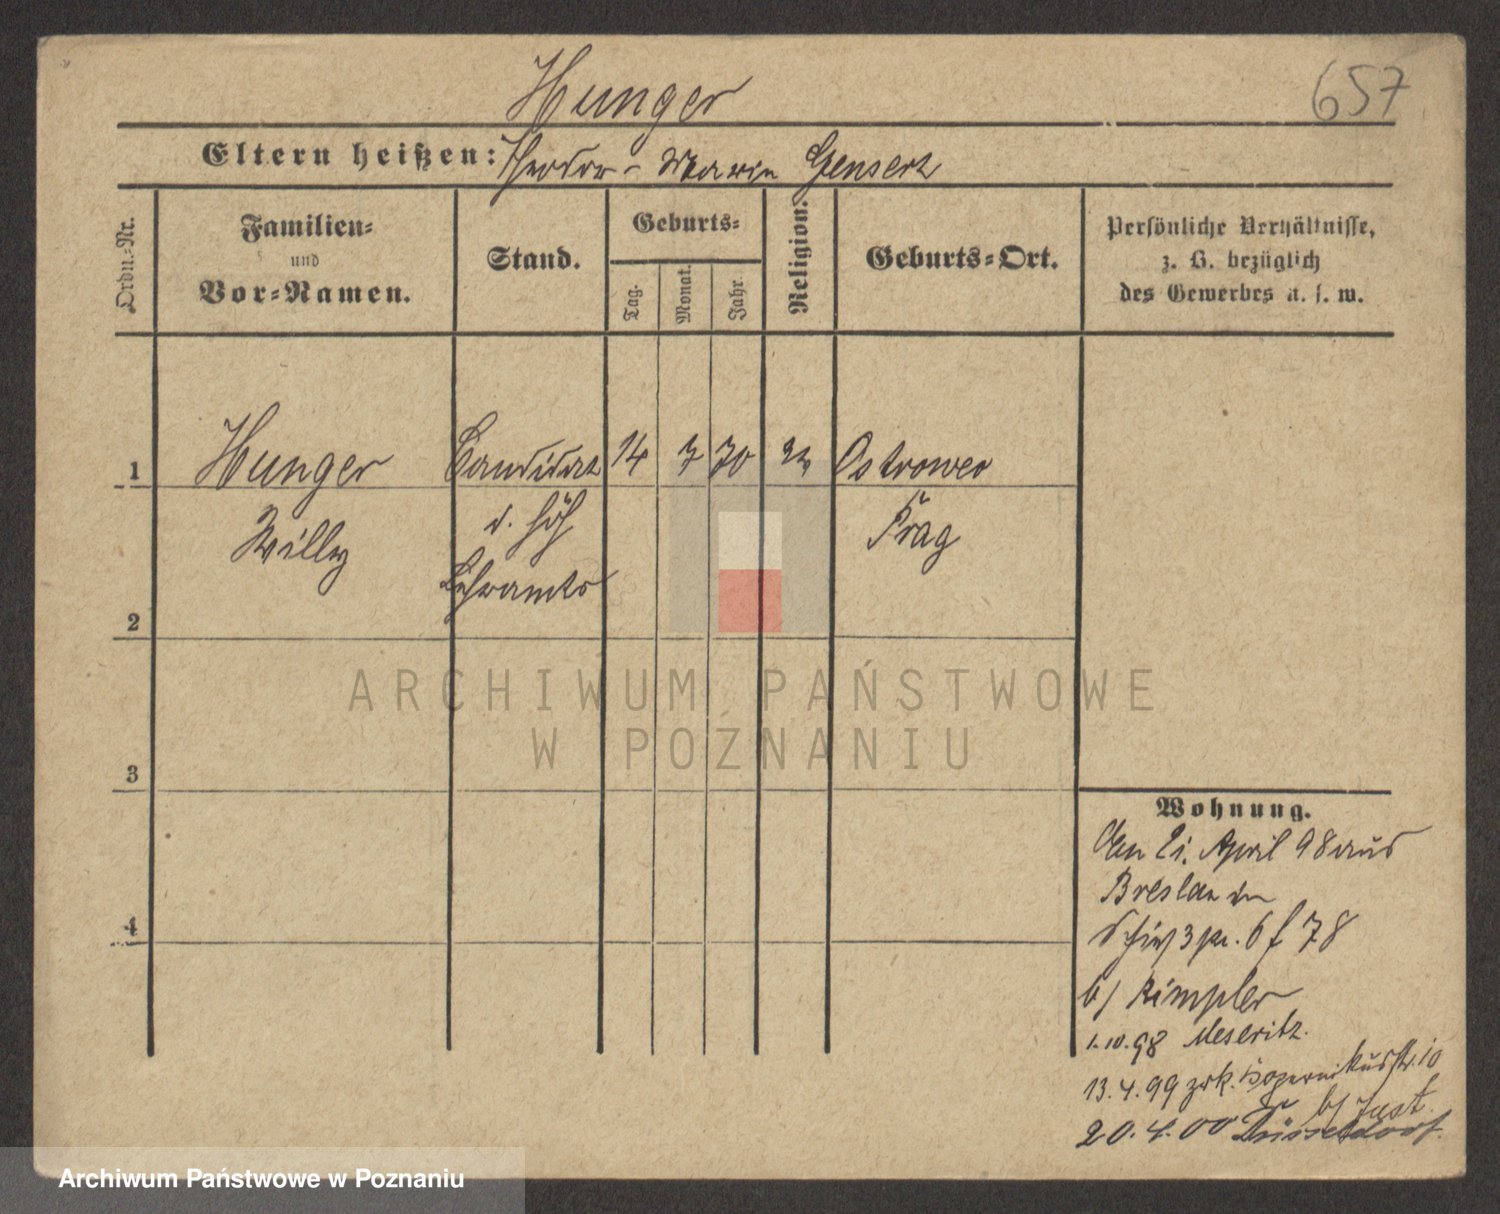 Hunger
657
Eltern heißen: Theodor - Marie Gensert
Ordn.-Nr.
Familien-
und
Vor-Namen.
Stand.
Geburts-
Tag.
Monat.
Jahr.
Religion.
Geburts-Ort.
Persönliche Verhältnisse,
z. B. bezüglich
des Gewerbes u. s. w.
1 Hunger Candidat 14 7 70 Ostrowo
Willy d. höh Prag
Lehramts
2
3
4
Wohnung.
Den 21. April 98 aus
Breslau
3 pr. 6 f 78
b/ Rimpler
1.10.98 Meseritz.
13.4.99 zrk. Kopernikusstr. 10
b/ Just.
20.4.00 Düsseldorf.
ARCHIWUM PAŃSTWOWE
W POZNANIU
Archiwum Państwowe w Poznaniu